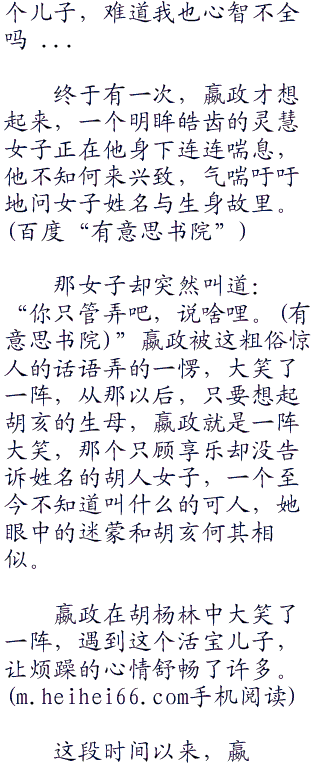 个儿子，难道我也心智不全
吗 ...
终于有一次，嬴政才想
起来，一个明眸皓齿的灵慧
女子正在他身下连连喘息，
他不知何来兴致，气喘吁吁
地问女子姓名与生身故里。
(百度“有意思书院”)
那女子却突然叫道：
“你只管弄吧，说啥哩。(有
意思书院)”嬴政被这粗俗惊
人的话语弄的一愣，大笑了
一阵，从那以后，只要想起
胡亥的生母，嬴政就是一阵
大笑，那个只顾享乐却没告
诉姓名的胡人女子，一个至
今不知道叫什么的可人，她
眼中的迷蒙和胡亥何其相
似。
嬴政在胡杨林中大笑了
一阵，遇到这个活宝儿子，
让烦躁的心情舒畅了许多。
(m.heihei66.com手机阅读)
这段时间以来，嬴